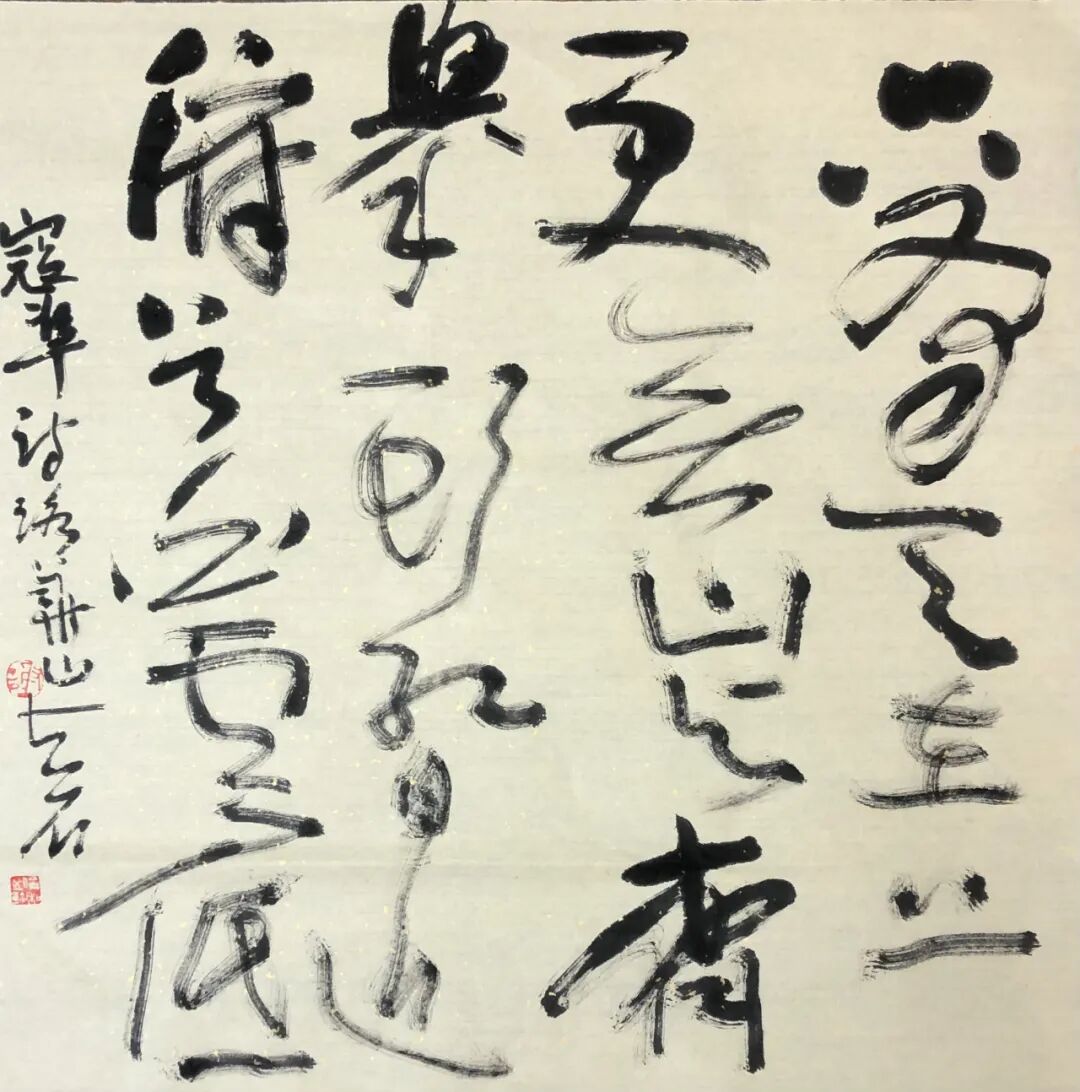 只有天在上
更無山与齊
舉頭紅日近
俯首白雲低
寇準詩詠華山